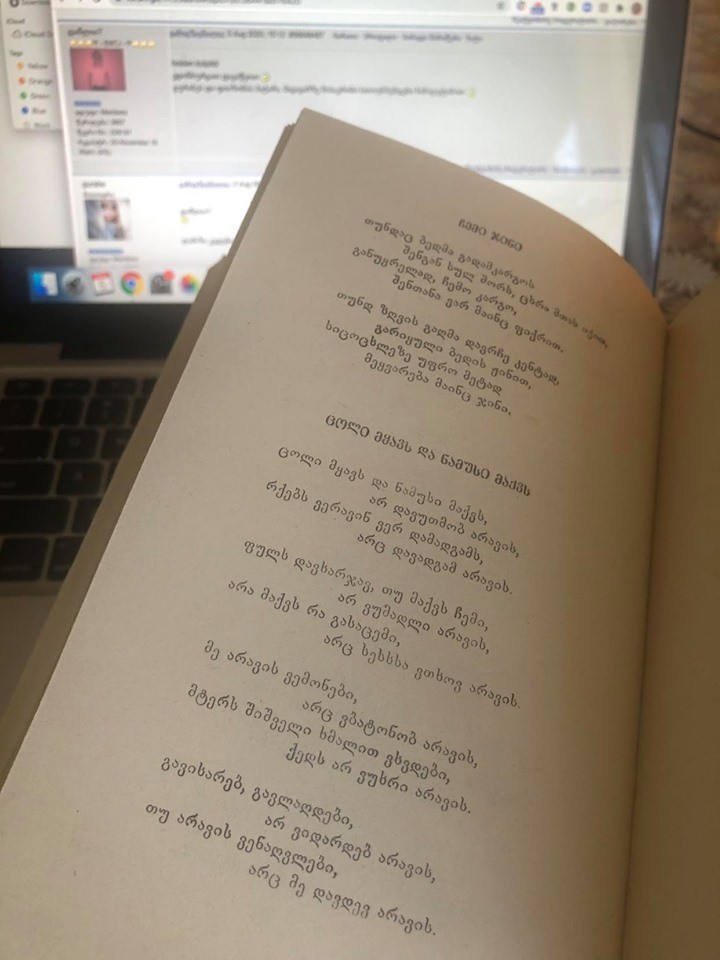 Yellow
Orange
Green
Blue
ᲩᲔᲛᲘ ᲯᲘᲜᲘ
თუნდაც ბედმა გადამკარგოს
შენგან სულ შორს, ცხრა მთას იქით,
განუყრელად, ჩემო კარგო,
შენთანა ვარ მაინც ფიქრით.
თუნდ ზღვის გაღმა დავრჩე კენტად,
გარიყული ბედის ჟინით,
სიცოცხლეზე უფრო მეტად
მეყვარება მაინც ჯინი.
ᲪᲝᲚᲘ ᲛᲧᲐᲕᲡ ᲓᲐ ᲜᲐᲛᲣᲡᲘ ᲛᲐᲥᲕᲡ
ცოლი მყავს და ნამუსი მაქვს,
არ დავუთმობ არავის,
რქებს ვერავინ ვერ დამადგამს,
არც დავადგამ არავის.
ფულს დავხარჯავ, თუ მაქვს ჩემი,
არ ვუმადლი არავის,
არა მაქვს რა გასაცემი,
არც სესხსა ვთხოვ არავის.
მე არავის ვემონები,
არც ვბატონობ არავის,
მტერს შიშველი ხმალით ვხვდები,
ქედს არ ვუხრი არავის.
გავიხარებ, გავლაღდები,
არ ვიდარდებ არავის,
თუ არავის ვენაღვლები,
არც მე დავდევ არავის.